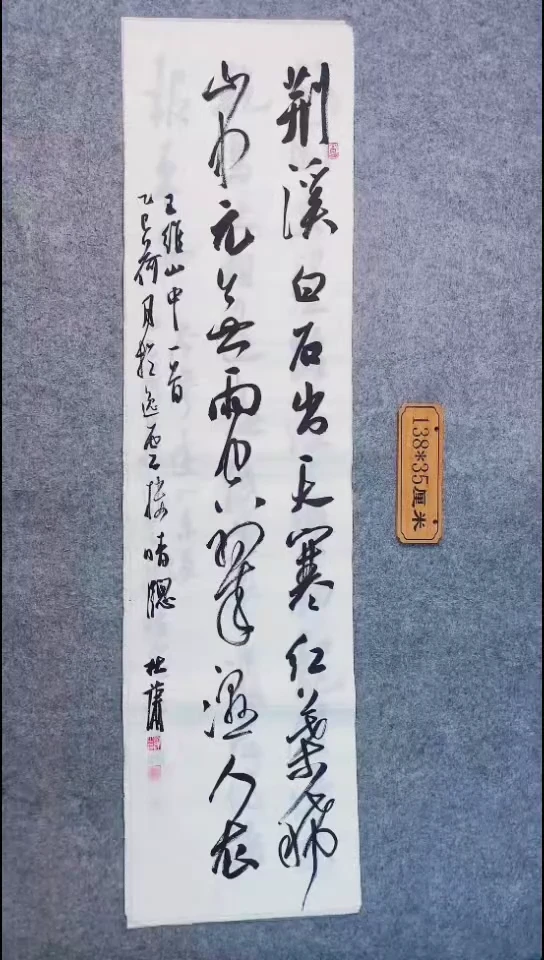 荆溪白石出天寒红葉稀
山中元無雨空翠湿人衣
王维山中一首
乙巳荷月於逸楼晴窗
138*35厘米